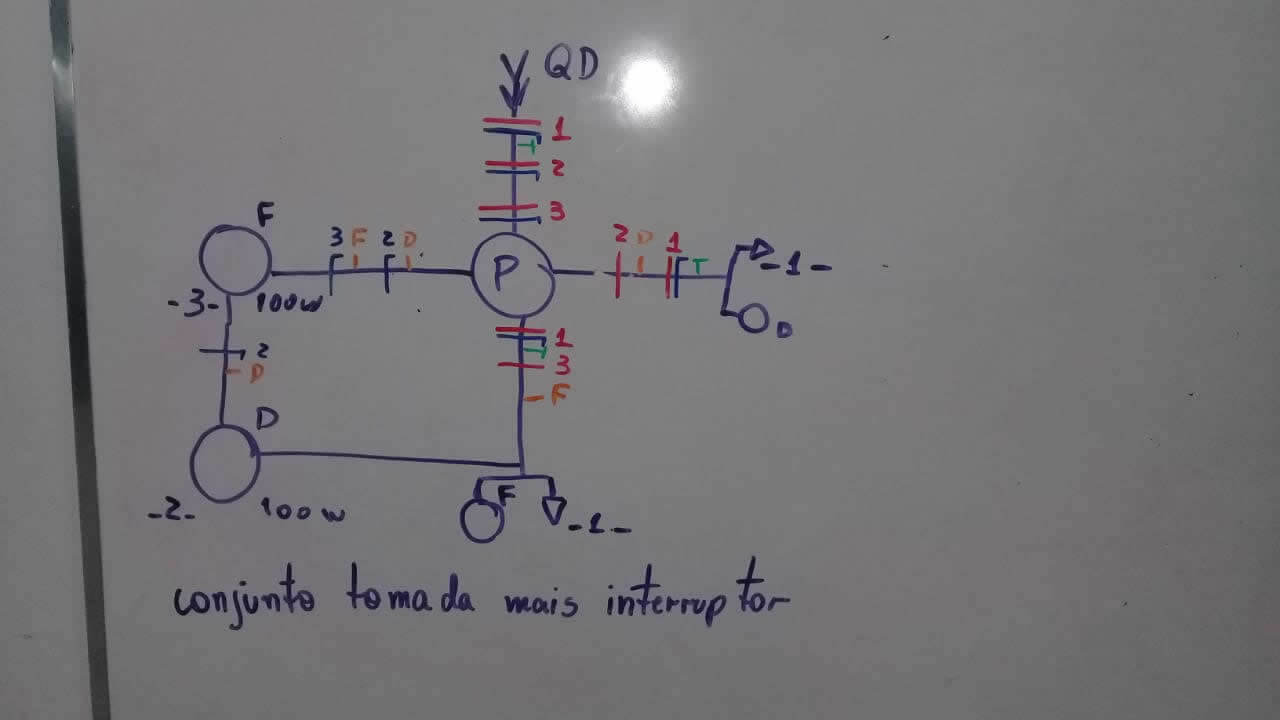 QD
1
T
2
3
F
3 F 2 D
P
2 D 1 T
-1-
D
-3- 100w
1
T
3
F
2
D
D
-2- 100w
F
-1-
conjunto tomada mais interruptor